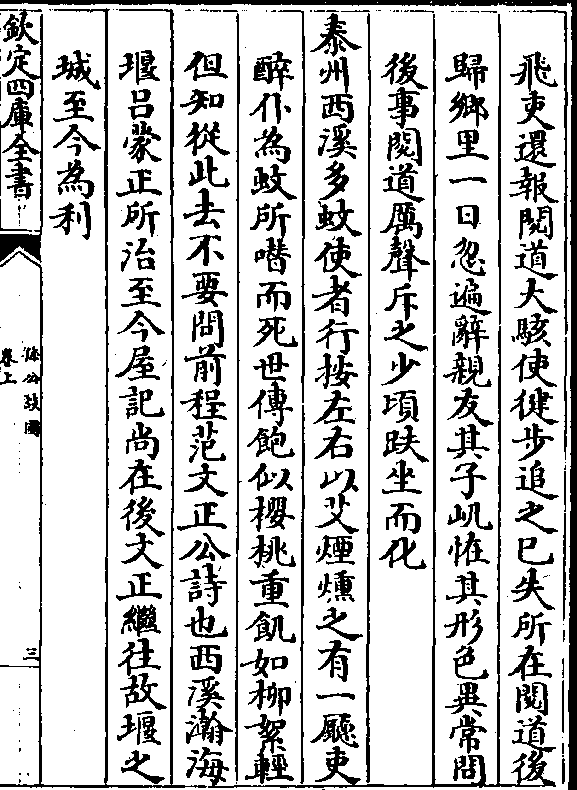 飛吏還報閲道大駭使健步追之已失所在閲道後
歸鄉里一日忽遍辭親友其子㞦怪其形色異常問
後事閲道厲聲斥之少頃趺坐而化
泰州西溪多蚊使者行按左右以艾煙燻之有一廳吏
醉仆為蚊所噆而死世傳飽似櫻桃重飢如柳絮輕
但知從此去不要問前程范文正公詩也西溪瀚海
堰吕蒙正所治至今屋記尚在後文正繼往故堰之
城至今為利
欽定四庫全書
孫公談圃
卷上
三